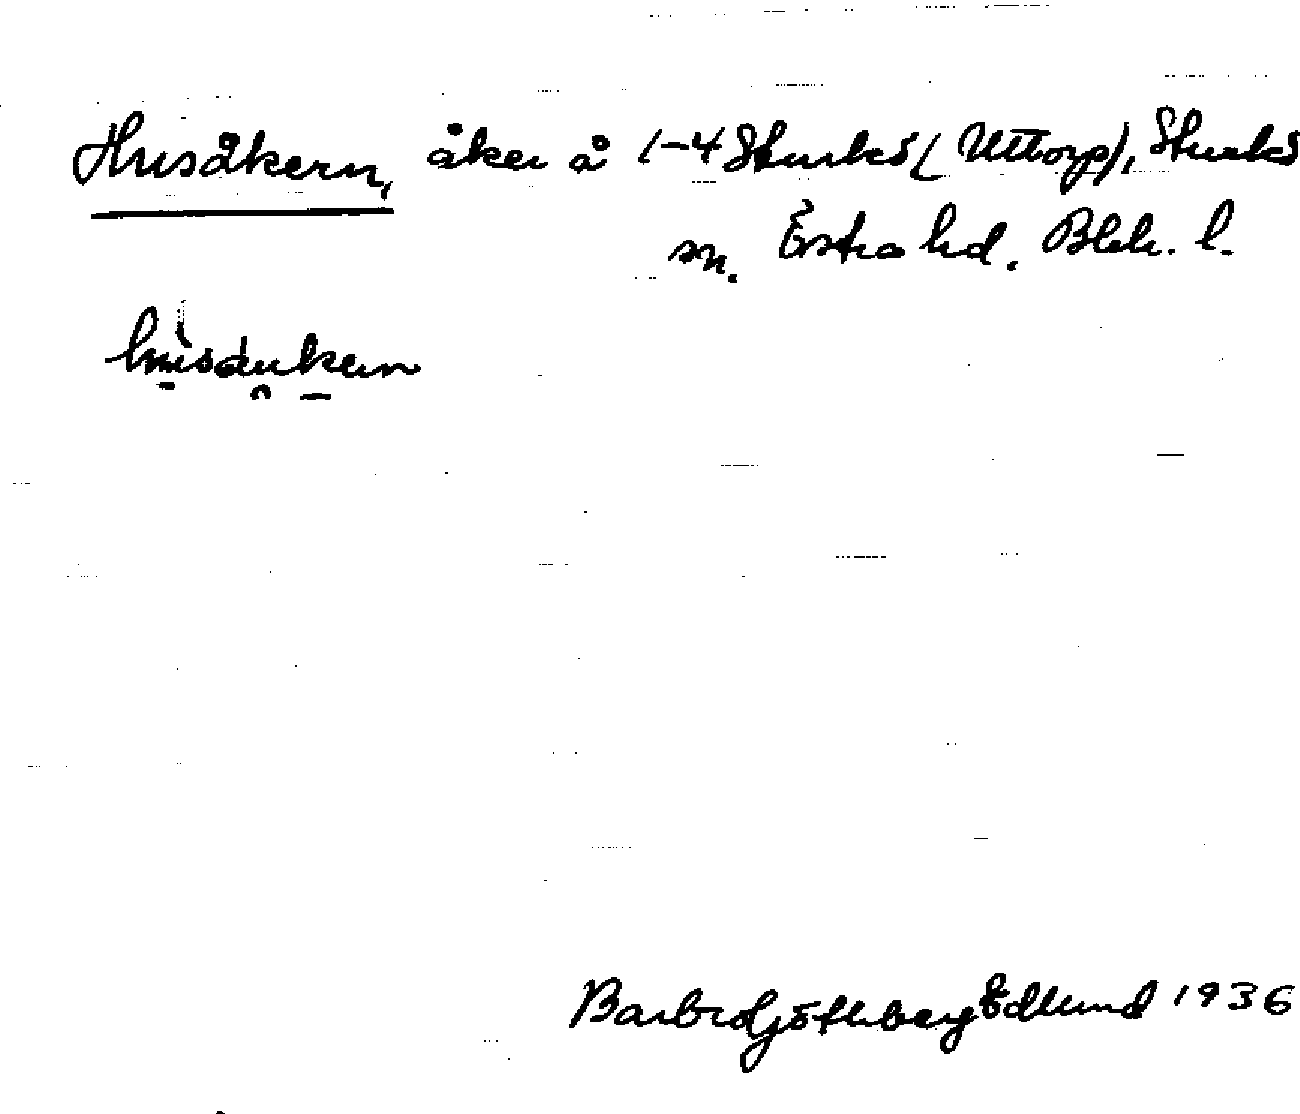 Husåkern, åker å 1-4 Sturkö (Uttorp), Sturkö
sn. Östra hd. Blek. l.
Barbro Götheberg Edlund 1936